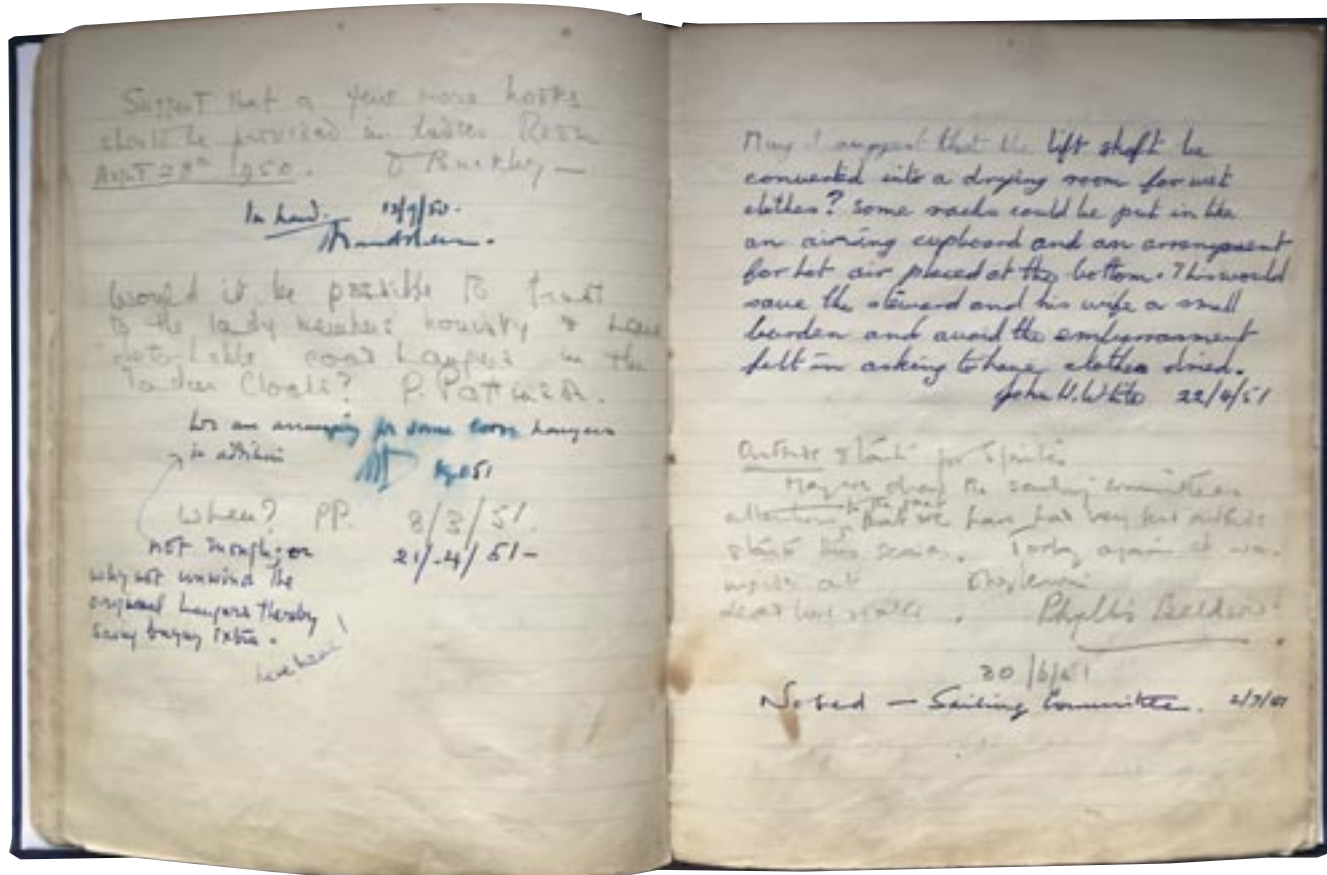 Suggest that a few more hooks
should be provided in Ladies Room
28th 1950. Buckley —
In hand. 12/9/50.
Would it be possible to trust
to the lady members' honesty & have
detachable coat hangers in the
Ladies Cloaks? P. Pattinson.
We are arranging for some more hangers
in addition
51
When? PP. 8/3/51.
not enough; or 21/.4/51-
why not unwind the
original hangers thereby
saving buying extra.
hear hear!
May I suggest that the lift shaft be
converted into a drying room for wet
clothes? Some racks could be put in like
an airing cupboard and an arrangement
for hot air placed at the bottom. This would
save the steward and his wife a small
burden and avoid the embarrassment
felt in asking to have clothes dried.
John H. White 22/4/51
Outside starts for
May we draw the sailing committees
attention, to the fact that we have had very few outside
starts this season. Today again it was
Phyllis
30/6/51
Noted — Sailing Committee. 2/7/51